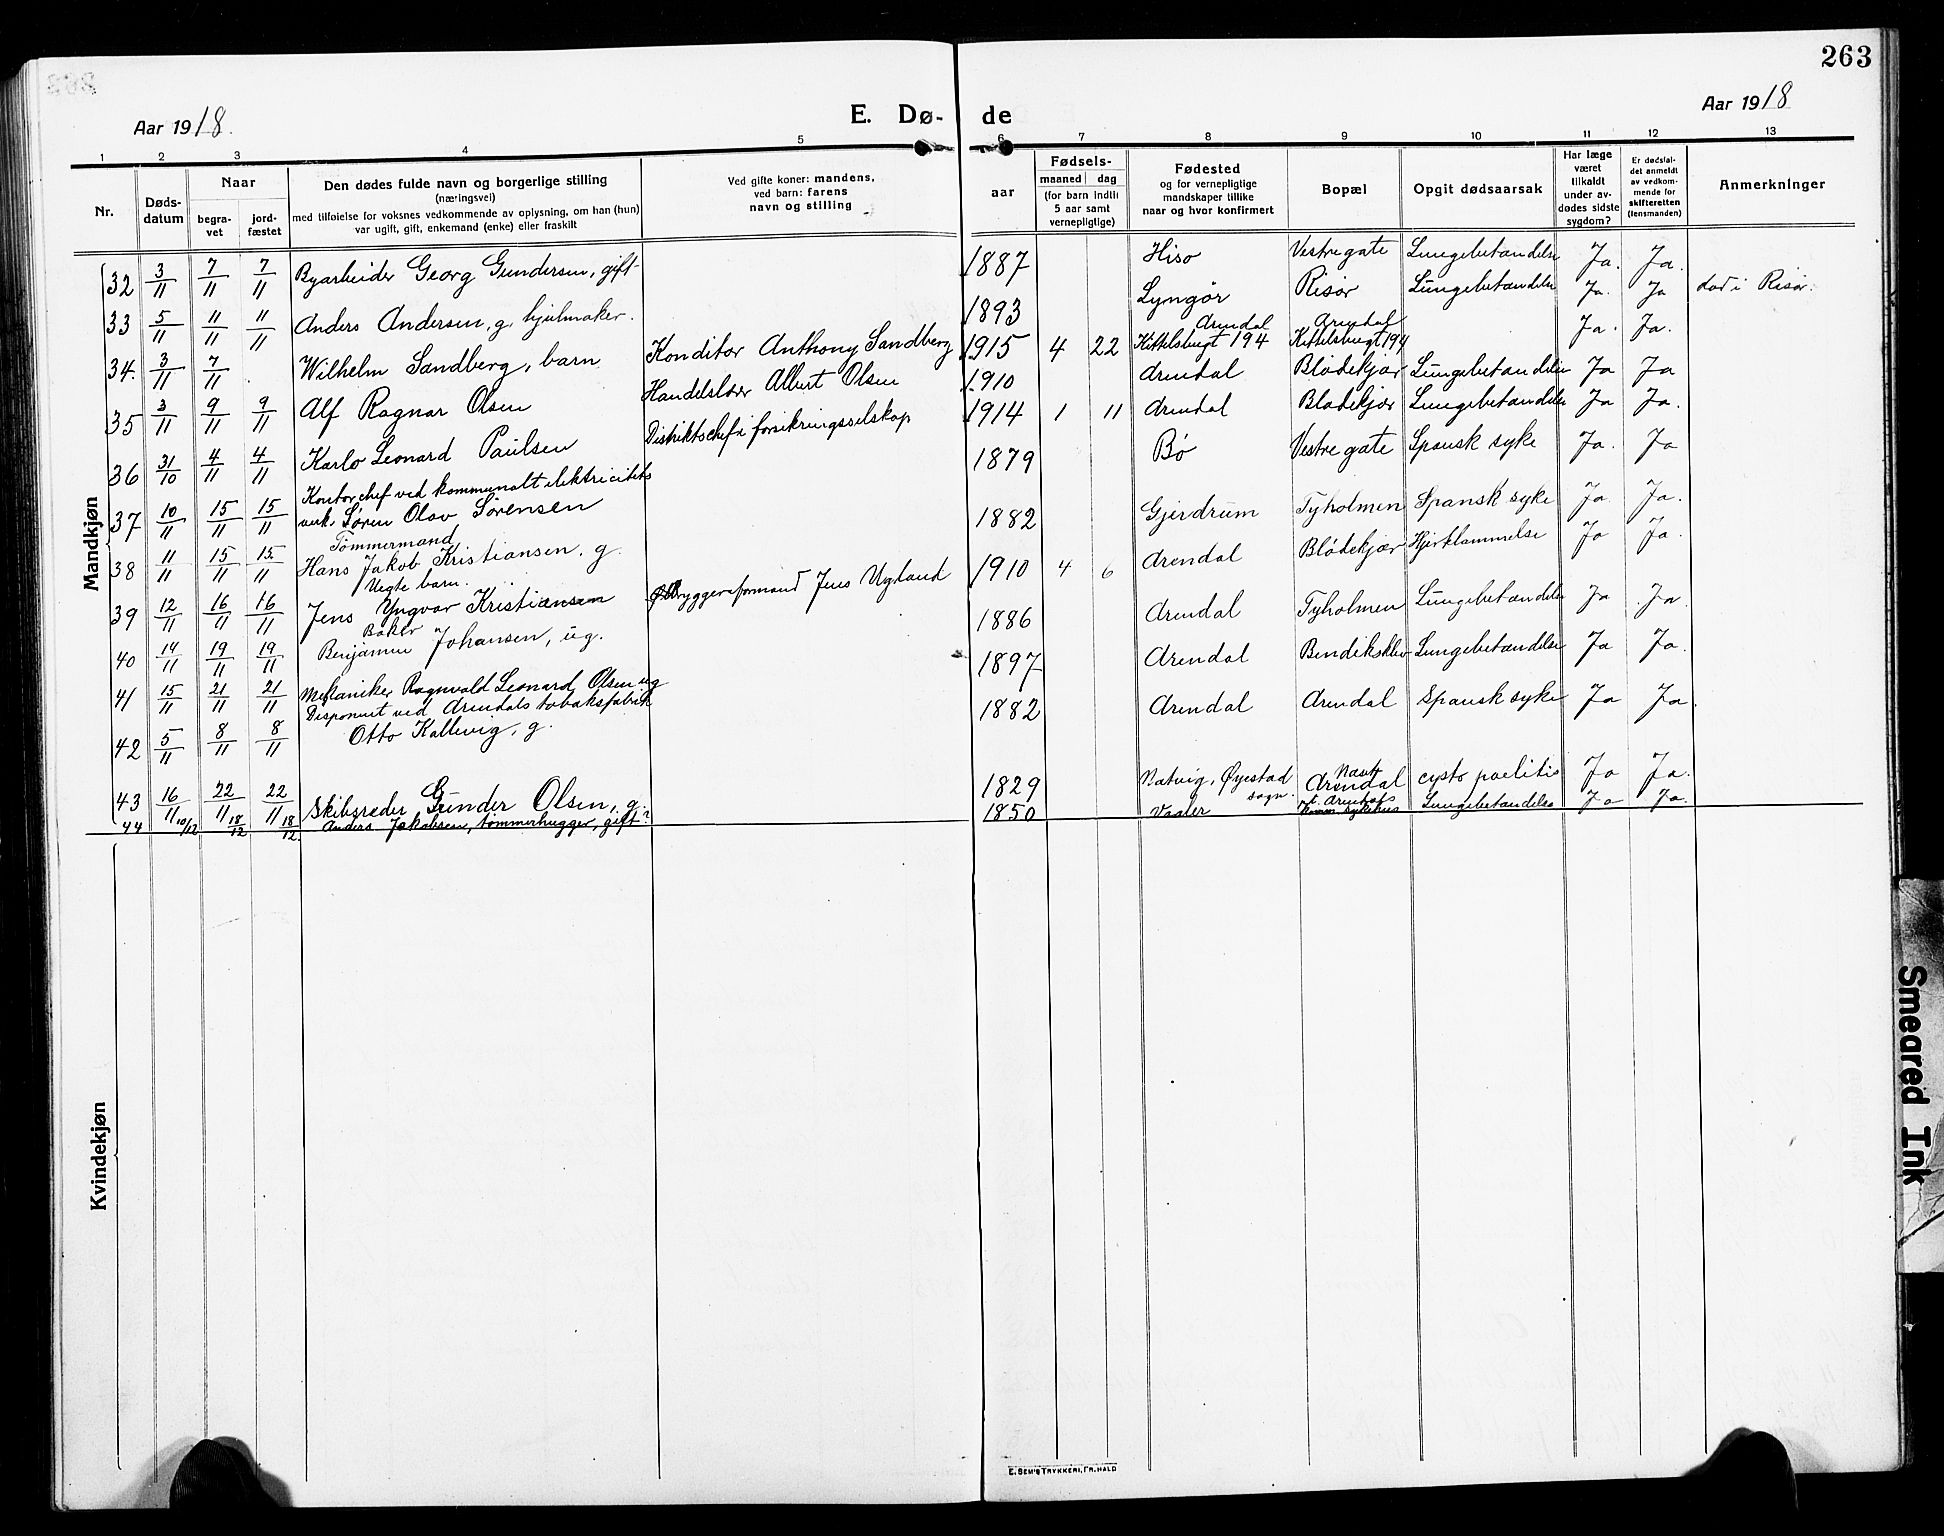 263
Aar 1918.
E. Dø-
de
Aar 1918
1 2 3 4 5 6 7 8 9 10 11 12 13
Nr.
Døds-
datum
Naar
begra-
vet
jord-
fæstet
Den dødes fulde navn og borgerlige stilling
(næringsvei)
med tilføielse for voksnes vedkommende av oplysning, om han (hun)
var ugift, gift, enkemand (enke) eller fraskilt
Ved gifte koner: mandens,
ved barn: farens
navn og stilling
aar
Fødsels-
maaned dag
(for barn indtil
5 aar samt
vernepligtige)
Fødested
og for vernepligtige
mandskaper tillike
naar og hvor konfirmert
Bopæl
Opgit dødsaarsak
Har læge
været
tilkaldt
under av-
dødes sidste
sygdom?
Er dødsfal-
det anmeldt
av vedkom-
mende for
skifteretten
(lensmanden)
Anmerkninger
Mandkjøn
32 3/11 7/11 7/11 Byarbeider Georg Gundersen, gift 1887 Hisø Vestregate Lungebetændelse Ja. Ja.
33 5/11 11/11 11/11 Anders Andersen, g, hjulmaker. 1893 Lyngør Risør Lungebetændelse Ja. Ja død i Risør.
34. 3/11 7/11 Wilhelm Sandberg, barn Konditor Anthony Sandberg 1915 4 22 Arendal Kittelsbugt 194 Arendal Kittelsbugt 194 Ja. Ja.
35 3/11 9/11 9/11 Alf Ragnar Olsen Handelslærer Albert Olsen 1910 Arendal Blødekjær Lungebetændelse Ja Ja
36 31/10 4/11 4/11 Karlo Leonard Paulsen Distriktschef i forsikringsselskap 1914 1 11 Arendal Blødekjær Lungebetændelse Ja Ja.
37 10/11 15/11 15/11 Kontorchef ved kommunalt elektricitets
verk. Søren Olav Sørensen 1879 Bø Vestregate Spansk syke Ja. Ja
38 11/11 15/11 15/11 Tømmermand
Hans Jakob Kristiansen. g. 1882 Gjerdrum Tyholmen Spansk syke Ja Ja.
39 12/11 16/11 16/11 Uegte barn.
Jens Yngvar Kristiansen Ølbryggeriformand Jens Ugland 1910 4 6 Arendal Blødekjær Hjerklammelse Ja Ja.
40 14/11 19/11 19/11 Baker
Benjamin Johansen, ug. 1886 Arendal Tyholmen Lungebetændelse Ja Ja.
41 15/11 21/11 21/11 Mekaniker Ragnvald Leonard Olsen ug 1897 Arendal Bendiksklev Lungebetændelse Ja Ja.
42 5/11 8/11 8/11 Disponent ved Arendals tobaksfabrik
Otto Kallevig, g. 1882 Arendal Arendal Spansk syke Ja Ja.
43 16/11 22/11 22/11 Skibsreder Gunder Olsen, g. 1829 Natvig, Øyestad sogn. Arendal cysto poelitis Ja Ja.
44 10/12 18/12 18/12. Anders Jakobsen, tømmerhugger, gift? 1850 Vaaler Arendal Komm. sykehus Lungebetændelse Ja Ja.
Kvindekjøn
E. SEM'S TRYKKERI, FR.HALD
Smeared Ink